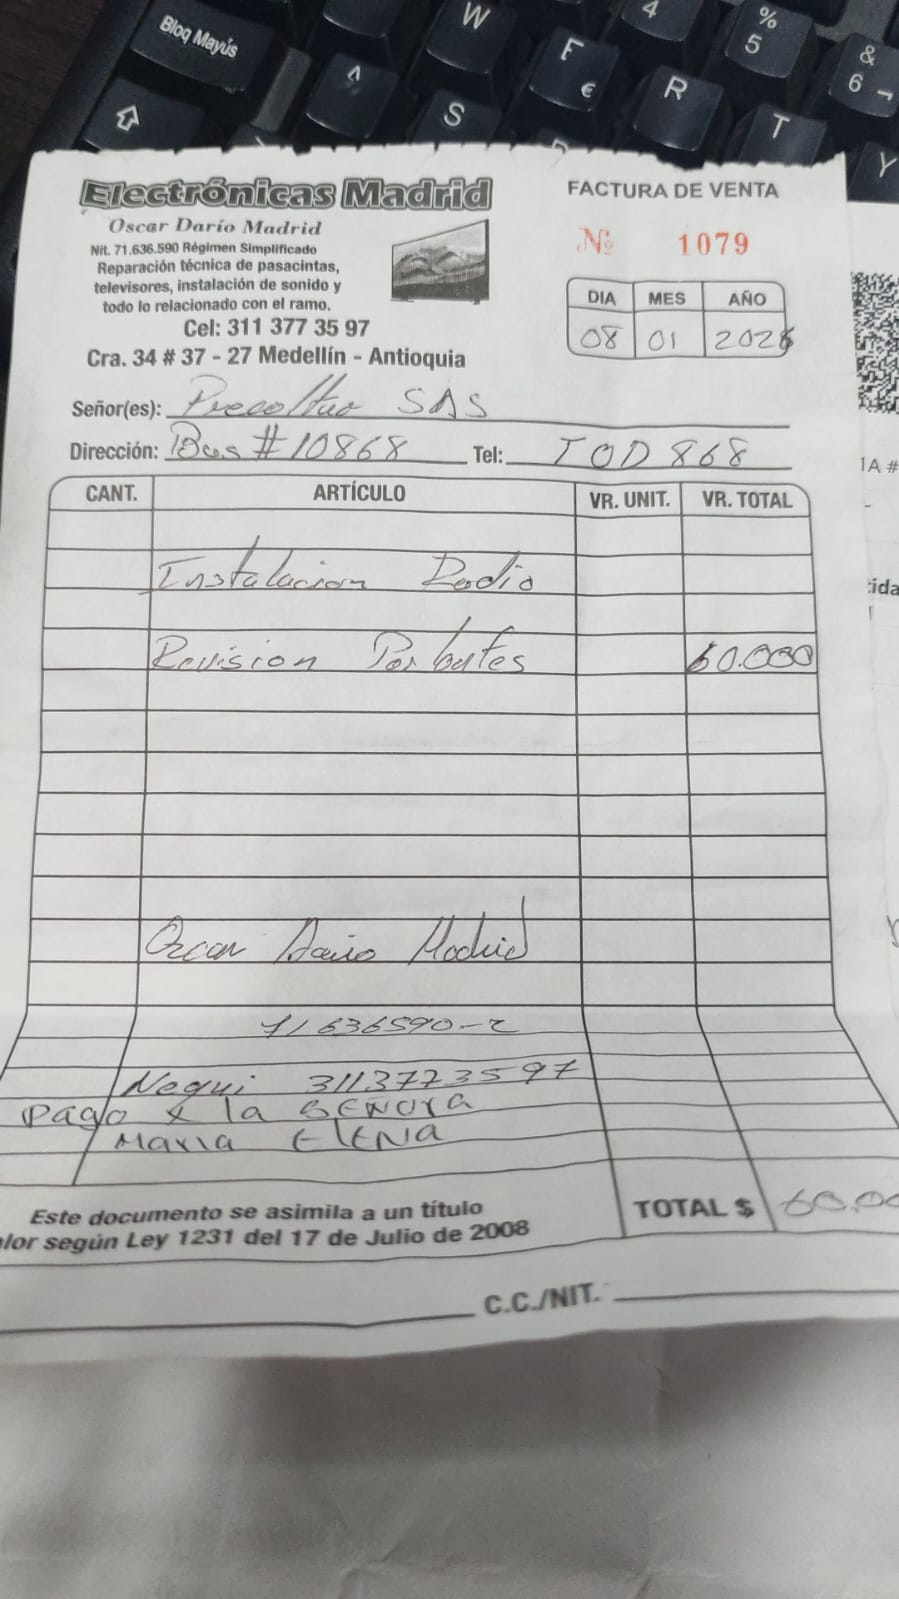 Bloq Mayús
W
4
%
5
&
6 ¬
F
€
R
^
S
T
Y
Electrónicas Madrid
Oscar Darío Madrid
Nit. 71.636.590 Régimen Simplificado
Reparación técnica de pasacintas,
televisores, instalación de sonido y
todo lo relacionado con el ramo.
Cel: 311 377 35 97
Cra. 34 # 37 - 27 Medellín - Antioquia
FACTURA DE VENTA
Nº 1079
DIA MES AÑO
08 01 2026
Señor(es): SAS
Dirección: Bus # 10868 Tel: TOD 868
CANT. ARTÍCULO VR. UNIT. VR. TOTAL
Instalacion Radio
Revision Parlantes 60.000
Oscar Dario Madrid
71636590-2
Nequi 3113773597
Pago x la SEÑORA
MARIA ELENA
Este documento se asimila a un título
alor según Ley 1231 del 17 de Julio de 2008
TOTAL $ 60.00
C.C./NIT.
1A #